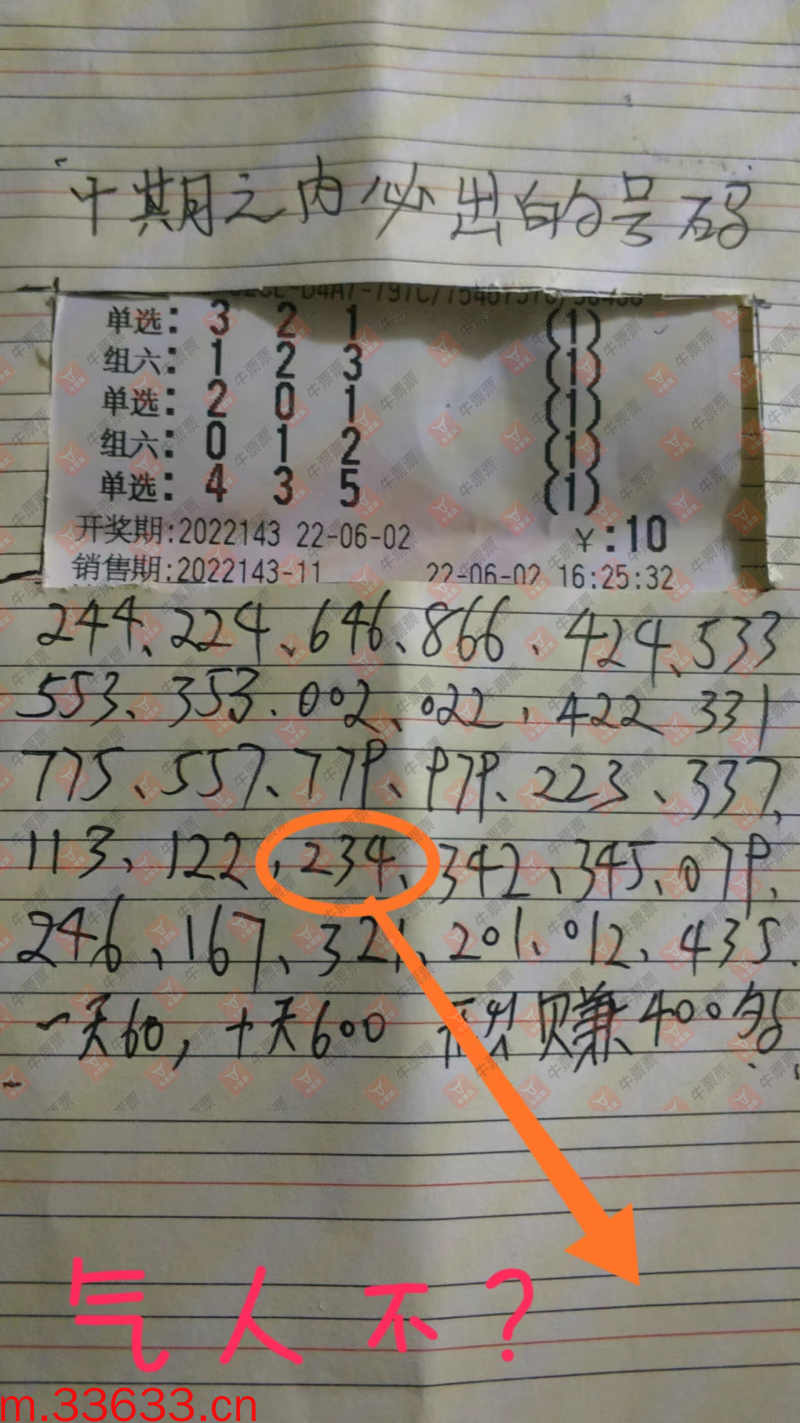 十期之内必出的号码
单选: 3 2 1 (1)
组六: 1 2 3 (1)
单选: 2 0 1 (1)
组六: 0 1 2 (1)
单选: 4 3 5 (1)
开奖期:2022143 22-06-02 ¥:10
销售期:2022143-11 22-06-02 16:25:32
244、224、646、866、424、533
553、353、002、022、422 331
775、557、779、979、223、337、
113、122、234、342、345、079、
246、167、321、201、012、435.
一天60,十天600 赚400多
气人不?
m.33633.cn
牛票票